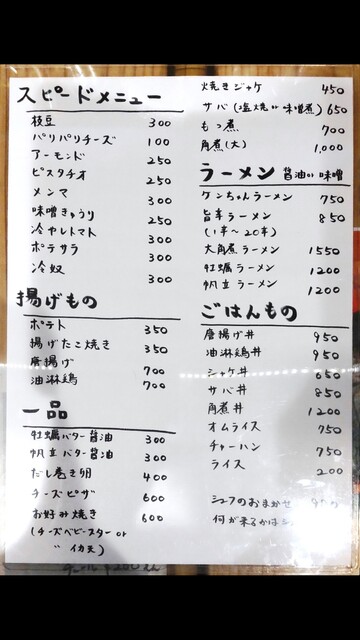 スピードメニュー
枝豆 300
パリパリチーズ 100
アーモンド 250
ピスタチオ 250
メンマ 300
味噌きゅうり 250
冷やしトマト 300
ポテサラ 300
冷奴 300
揚げもの
ポテト 350
揚げたこ焼き 350
唐揚げ 700
油淋鶏 700
一品
牡蠣バター醤油 300
帆立バター醤油 300
だし巻き卵 400
チーズピザ 600
お好み焼き 600
(チーズベビースター or
〃 イカ天)
焼きジャケ 450
サバ(塩焼 or 味噌煮) 650
もつ煮 700
角煮(大) 1,000
ラーメン 醤油 or 味噌
ケンちゃんラーメン 750
旨辛ラーメン 850
(1辛〜20辛)
大角煮ラーメン 1550
牡蠣ラーメン 1200
帆立ラーメン 1200
ごはんもの
唐揚げ丼 950
油淋鶏丼 950
シャケ丼 650
サバ丼 850
角煮丼 1200
オムライス 750
チャーハン 750
ライス 200
シェフのおまかせ
何が来るかは